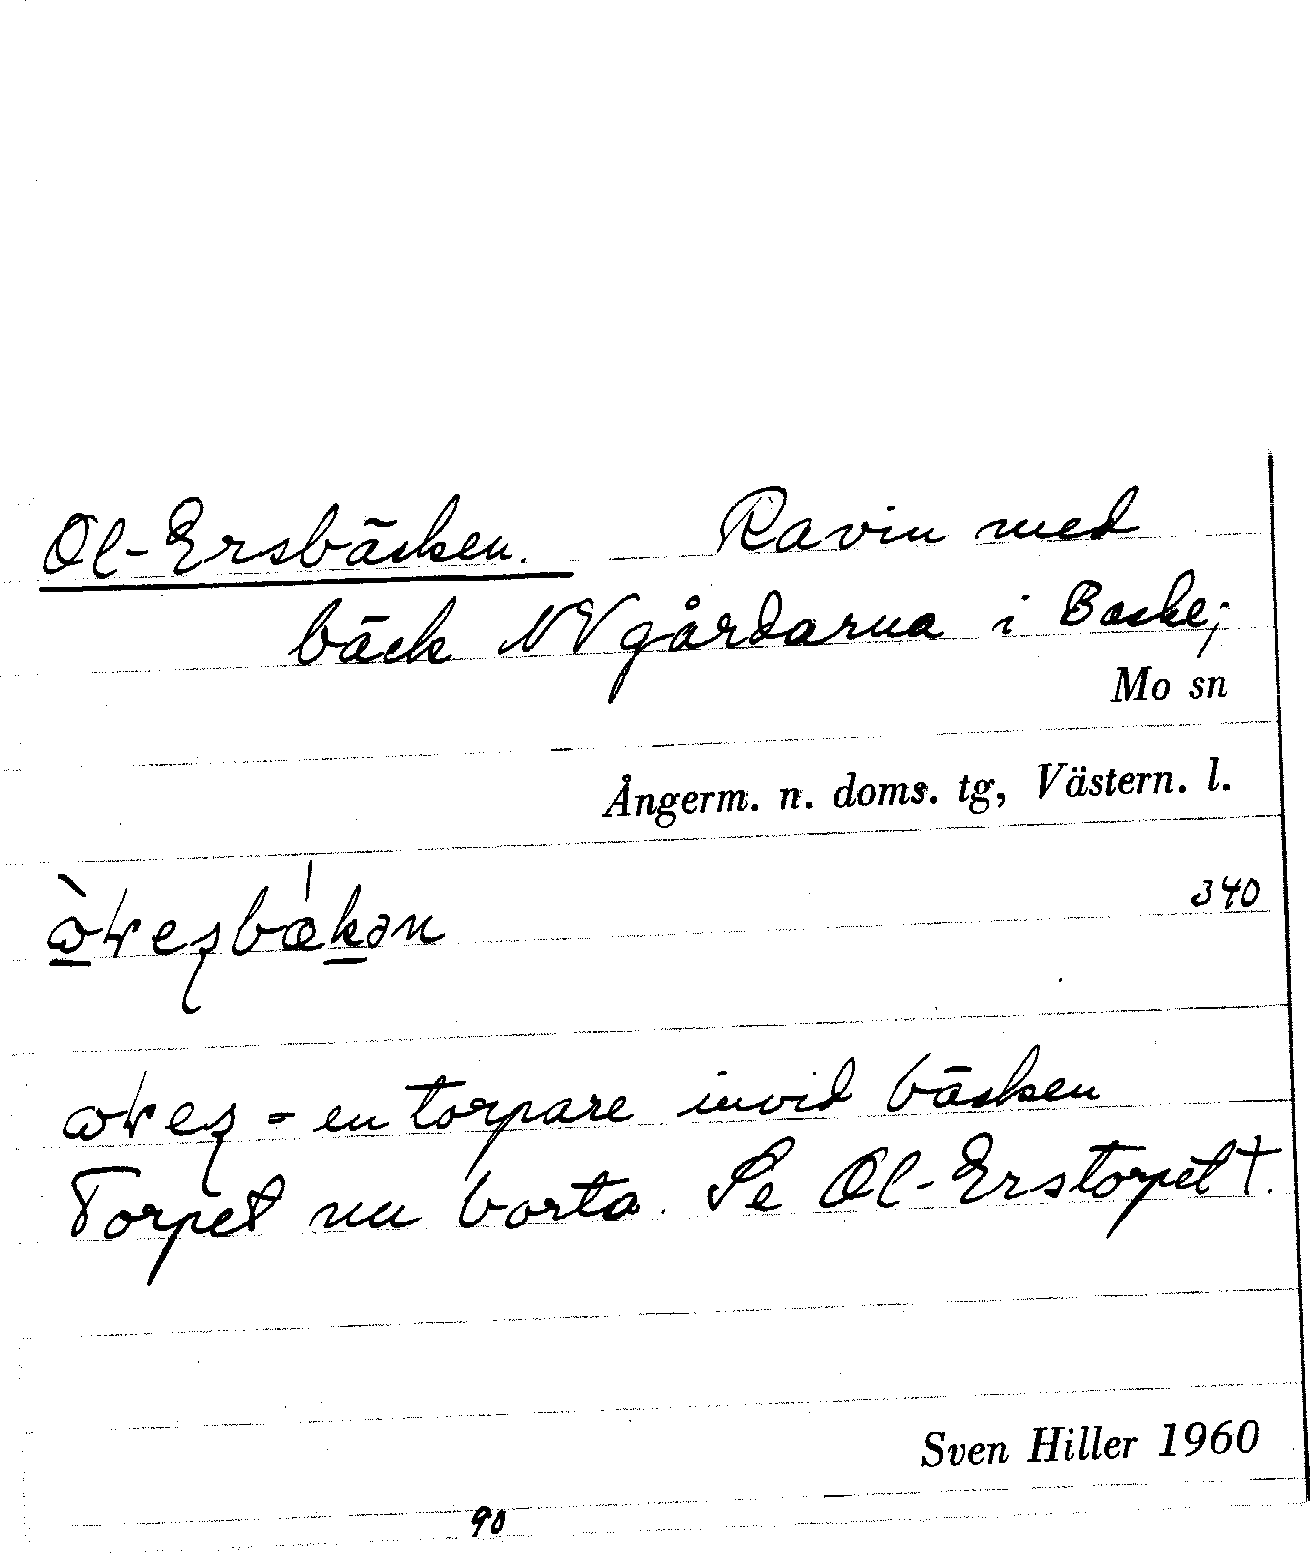 Ol-Ersbäcken. Ravin med
bäck NV gårdarna i Baske;
Mo sn
Ångerm. n. doms. tg, Västern. l.
340
en torpare invid bäcken
Torpet nu borta. Se Ol-Erstorpet †.
Sven Hiller 1960
90